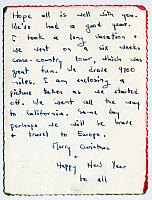 Hope all is well with you.
We've had a good year.
I took a long vacation &
we went on a six weeks
cross-country tour, which was
great fun. We drove 9700
miles. I am enclosing a
picture taken as we started
off. We went all the way
to California. Some day
perhaps we will be brave
& travel to Europe.
Merry Christmas
+
Happy New Year
to all